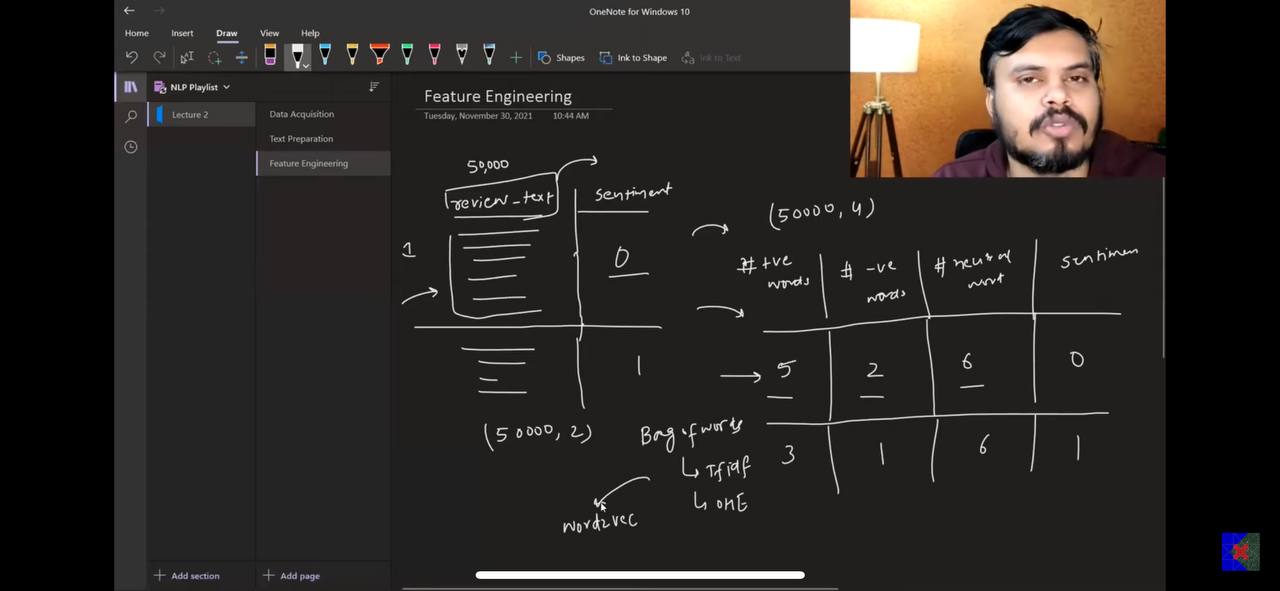 OneNote for Windows 10
Home Insert Draw View Help
Shapes Ink to Shape Ink to Text
NLP Playlist
Lecture 2
Data Acquisition
Text Preparation
Feature Engineering
Feature Engineering
Tuesday, November 30, 2021 10:44 AM
50,000
review_text sentiment
1 0
1
(50000, 2)
(50000, 4)
# +ve words # -ve words # neutral word sentimen
5 2 6 0
3 1 6 1
Bag of words
Tfidf
OHE
word2vec
Add section Add page